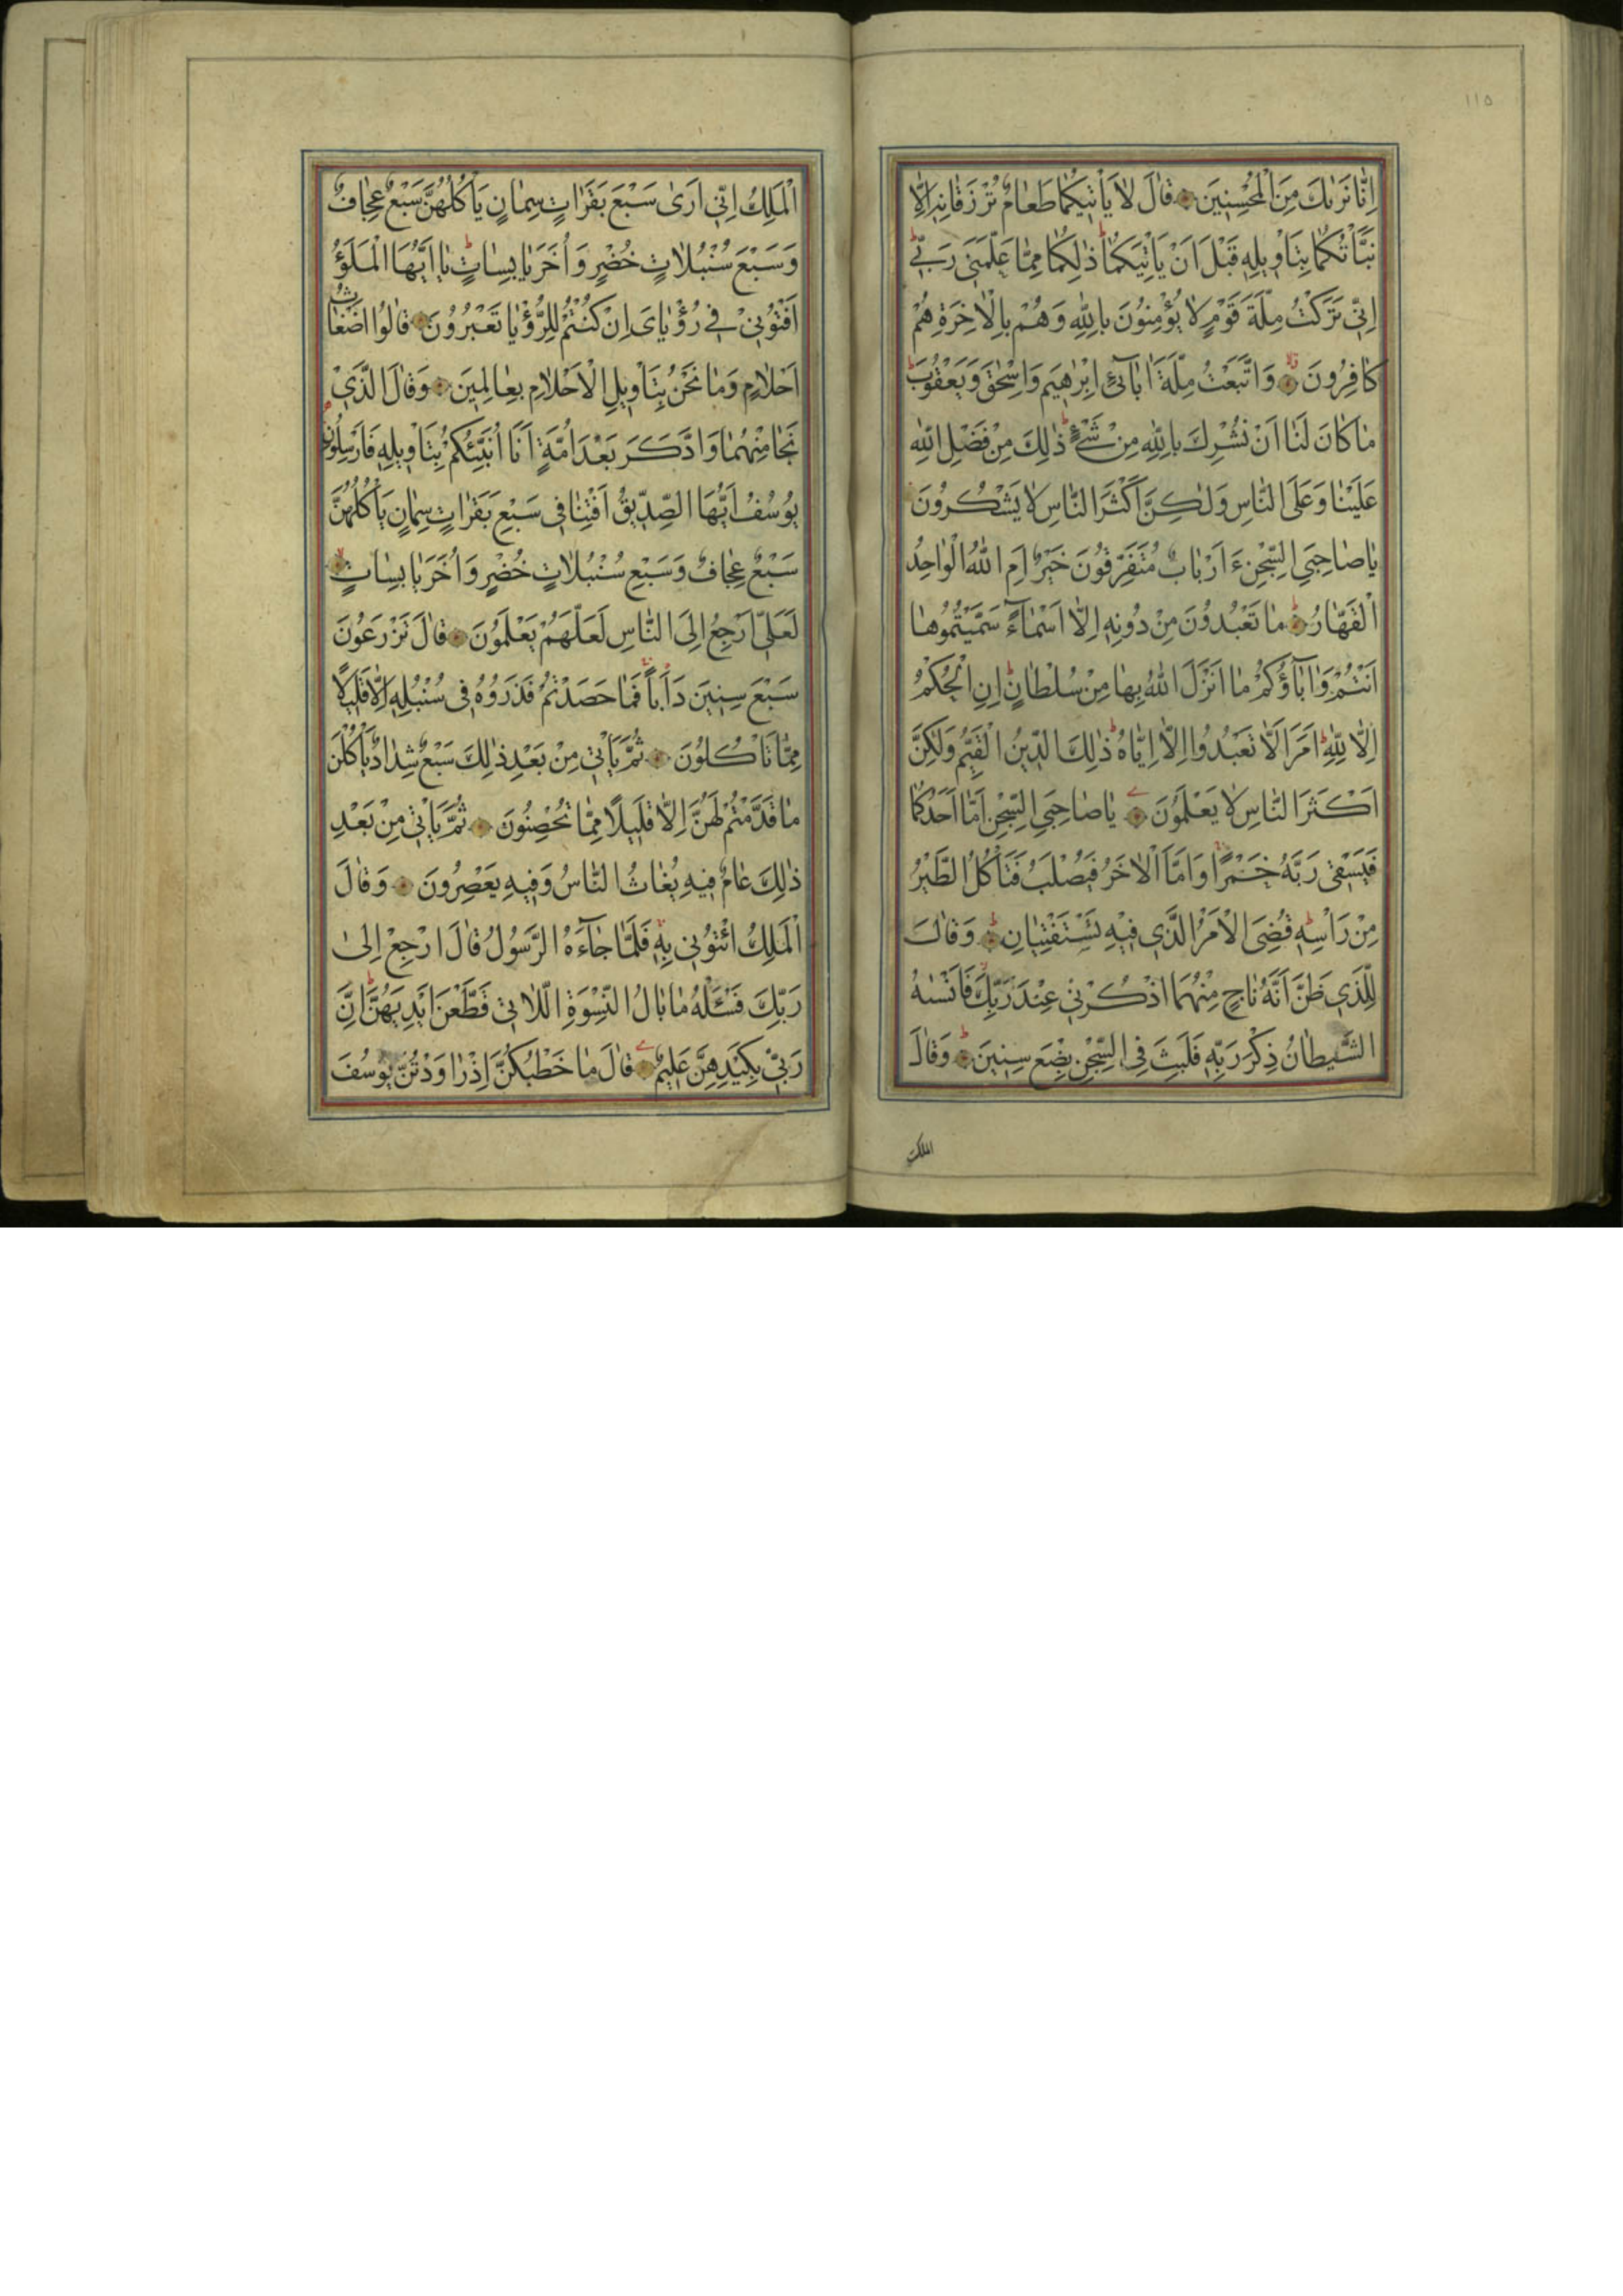 ١١٥
اِنَّا نَرٰىكَ مِنَ الْمُحْسِنِينَ قَالَ لَا يَأْتِيكُمَا طَعَامٌ تُرْزَقَانِهِ اِلَّا
نَبَّأْتُكُمَا بِتَأْوِيلِهِ قَبْلَ اَنْ يَأْتِيَكُمَا ذٰلِكُمَا مِمَّا عَلَّمَنِي رَبِّي
اِنِّي تَرَكْتُ مِلَّةَ قَوْمٍ لَا يُؤْمِنُونَ بِاللّٰهِ وَهُمْ بِالْاٰخِرَةِ هُمْ
كَافِرُونَ وَاتَّبَعْتُ مِلَّةَ اٰبَآئِ اِبْرٰهِيمَ وَاِسْحٰقَ وَيَعْقُوبَ
مَا كَانَ لَنَا اَنْ نُشْرِكَ بِاللّٰهِ مِنْ شَيْءٍ ذٰلِكَ مِنْ فَضْلِ اللّٰهِ
عَلَيْنَا وَعَلَى النَّاسِ وَلٰكِنَّ اَكْثَرَ النَّاسِ لَا يَشْكُرُونَ
يَا صَاحِبَيِ السِّجْنِ ءَاَرْبَابٌ مُتَفَرِّقُونَ خَيْرٌ اَمِ اللّٰهُ الْوَاحِدُ
الْقَهَّارُ مَا تَعْبُدُونَ مِنْ دُونِهِ اِلَّا اَسْمَآءً سَمَّيْتُمُوهَا
اَنْتُمْ وَاٰبَآؤُكُمْ مَا اَنْزَلَ اللّٰهُ بِهَا مِنْ سُلْطَانٍ اِنِ الْحُكْمُ
اِلَّا لِلّٰهِ اَمَرَ اَلَّا تَعْبُدُوا اِلَّا اِيَّاهُ ذٰلِكَ الدِّينُ الْقَيِّمُ وَلٰكِنَّ
اَكْثَرَ النَّاسِ لَا يَعْلَمُونَ يَا صَاحِبَيِ السِّجْنِ اَمَّا اَحَدُكُمَا
فَيَسْقِي رَبَّهُ خَمْرًا وَاَمَّا الْاٰخَرُ فَيُصْلَبُ فَتَأْكُلُ الطَّيْرُ
مِنْ رَأْسِهِ قُضِيَ الْاَمْرُ الَّذِي فِيهِ تَسْتَفْتِيَانِ وَقَالَ
لِلَّذِي ظَنَّ اَنَّهُ نَاجٍ مِنْهُمَا اذْكُرْنِي عِنْدَ رَبِّكَ فَاَنْسٰىهُ
الشَّيْطَانُ ذِكْرَ رَبِّهِ فَلَبِثَ فِي السِّجْنِ بِضْعَ سِنِينَ وَقَالَ
الملك
الْمَلِكُ اِنِّي اَرٰى سَبْعَ بَقَرَاتٍ سِمَانٍ يَأْكُلُهُنَّ سَبْعٌ عِجَافٌ
وَسَبْعَ سُنْبُلَاتٍ خُضْرٍ وَاُخَرَ يَابِسَاتٍ يَا اَيُّهَا الْمَلَؤُ
اَفْتُونِي فِي رُؤْيَايَ اِنْ كُنْتُمْ لِلرُّؤْيَا تَعْبُرُونَ قَالُوا اَضْغَاثُ
اَحْلَامٍ وَمَا نَحْنُ بِتَأْوِيلِ الْاَحْلَامِ بِعَالِمِينَ وَقَالَ الَّذِي
نَجَا مِنْهُمَا وَادَّكَرَ بَعْدَ اُمَّةٍ اَنَا اُنَبِّئُكُمْ بِتَأْوِيلِهِ فَاَرْسِلُونِ
يُوسُفُ اَيُّهَا الصِّدِّيقُ اَفْتِنَا فِي سَبْعِ بَقَرَاتٍ سِمَانٍ يَأْكُلُهُنَّ
سَبْعٌ عِجَافٌ وَسَبْعِ سُنْبُلَاتٍ خُضْرٍ وَاُخَرَ يَابِسَاتٍ
لَعَلِّي اَرْجِعُ اِلَى النَّاسِ لَعَلَّهُمْ يَعْلَمُونَ قَالَ تَزْرَعُونَ
سَبْعَ سِنِينَ دَاَبًا فَمَا حَصَدْتُمْ فَذَرُوهُ فِي سُنْبُلِهِ اِلَّا قَلِيلًا
مِمَّا تَأْكُلُونَ ثُمَّ يَأْتِي مِنْ بَعْدِ ذٰلِكَ سَبْعٌ شِدَادٌ يَأْكُلْنَ
مَا قَدَّمْتُمْ لَهُنَّ اِلَّا قَلِيلًا مِمَّا تُحْصِنُونَ ثُمَّ يَأْتِي مِنْ بَعْدِ
ذٰلِكَ عَامٌ فِيهِ يُغَاثُ النَّاسُ وَفِيهِ يَعْصِرُونَ وَقَالَ
الْمَلِكُ ائْتُونِي بِهِ فَلَمَّا جَآءَهُ الرَّسُولُ قَالَ ارْجِعْ اِلٰى
رَبِّكَ فَسْـَٔلْهُ مَا بَالُ النِّسْوَةِ اللَّاتِي قَطَّعْنَ اَيْدِيَهُنَّ اِنَّ
رَبِّي بِكَيْدِهِنَّ عَلِيمٌ قَالَ مَا خَطْبُكُنَّ اِذْ رَاوَدْتُنَّ يُوسُفَ